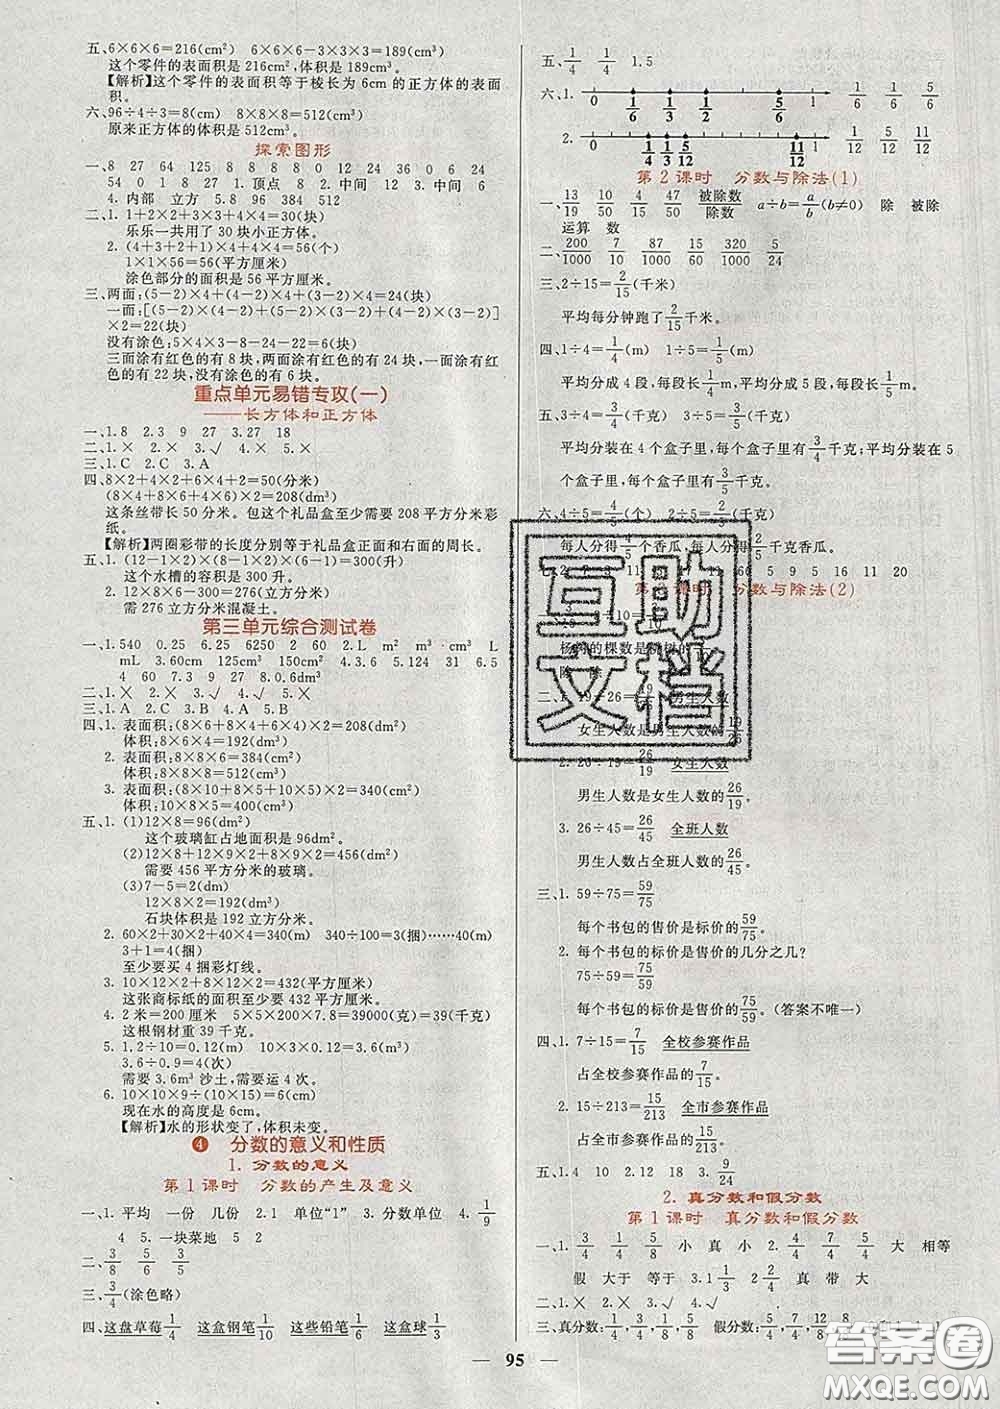 五、6×6×6=216(cm²)　6×6×6-3×3×3=189(cm³)
这个零件的表面积是216cm²,体积是189cm³。
【解析】这个零件的表面积等于棱长为6cm的正方体的表面
积。
六、96÷4÷3=8(cm)　8×8×8=512(cm³)
原来正方体的体积是512cm³。
探索图形
一、8　27　64　125　8　8　8　8　0　12　24　36　0　6　24
54　0　1　8　27　1. 顶点　8　2. 中间　12　3. 中间　6
4. 内部　立方　5. 8　96　384　512
二、1. 1+2×2+3×3+4×4=30(块)
乐乐一共用了30块小正方体。
2. (4+3+2+1)×4+4×4=56(个)
1×1×56=56(平方厘米)
涂色部分的面积是56平方厘米。
三、两面:(5-2)×4+(4-2)×4+(3-2)×4=24(块)
一面:[(5-2)×(4-2)+(5-2)×(3-2)+(4-2)×(3-2)]
×2=22(块)
没有涂色:5×4×3-8-24-22=6(块)
三面涂有红色的有8块,两面涂有红色的有24块,一面涂有
红色的有22块,没有涂色的有6块。
重点单元易错专攻(一)
——长方体和正方体
一、1. 8　2. 3　9　27　3. 27　18
二、1. ×　2. ×　3. √　4. ×　5. ×
三、1. C　2. C　3. A
四、8×2+4×2+6×4+2=50(分米)
(8×4+8×6+4×6)×2=208(dm²)
这条丝带长50分米。包这个礼品盒至少需要208平方分米彩
纸。
【解析】两圈彩带的长度分别等于礼品盒正面和右面的周长。
五、1. (12-1×2)×(8-1×2)×(6-1)=300(升)
这个水槽的容积是300升。
2. 12×8×6-300=276(立方分米)
需276立方分米混凝土。
第三单元综合测试卷
一、1. 540　0.25　6.25　6250　2　60　2. L　m²　m³　cm³　L
mL　3. 60cm　125cm³　150cm²　4. 3.6　121　31　5. 6.5
4　60　7. 9　27　8. 0.6m³
二、1. √　2. ×　3. ×　4. ×　5. √
三、1. A　2. C　3. B　4. A　5. B
四、1. 表面积:(8×6+8×4+6×4)×2=208(dm²)
体积:8×6×4=192(dm³)
2. 表面积:8×8×6=384(dm²)
体积:8×8×8=512(dm³)
3. 表面积:(10×8+8×5+10×5)×2=340(cm²)
体积:10×8×5=400(cm³)
五、1. (1)12×8=96(dm²)
这个玻璃缸占地面积是96dm²。
(2)12×8+12×9×2+8×9×2=456(dm²)
需要456平方分米的玻璃。
(3)7-5=2(dm)
12×8×2=192(dm³)
石块体积是192立方分米。
2. 60×2+30×2+40×4=340(m)　340÷100=3(捆)……40(m)
3+1=4(捆)
至少要买4捆彩灯线。
3. 10×12×2+8×12×2=432(平方厘米)
这张商标纸的面积至少要432平方厘米。
4. 2米=200厘米　5×5×200×7.8=39000(克)=39(千克)
这根钢材重39千克。
5. 1.2÷10=0.12(m)　10×3×0.12=3.6(m³)
3.6÷0.9=4(次)
需要3.6m³沙土,需要运4次。
6. 10×10×9÷(10×15)=6(cm)
现在水的高度是6cm。
【解析】水的形状变了,体积未变。
4 分数的意义和性质
1. 分数的意义
第1课时　分数的产生及意义
一、1. 平均　一份　几份　2. 1　单位“1”　3. 分数单位　4. 1/9
4　5. 一块菜地　5　2
二、3/8　5/6　3/5
三、3/4(涂色略)
四、这盘草莓1/4　这盒钢笔1/10　这些铅笔1/6　这盒球1/3
五、1/4　1/4　1.5
六、1. 0　1/6　1/3　1/2　5/6　1　1/6　1/2　5/6
2. 0　1/4　1/3　5/12　11/12　1　1/12　5/12　11/12
第2课时　分数与除法(1)
一、13/19　10/50　4/15　47/50　被除数/除数　a÷b=a/b(b≠0)　除　被除
运算　数
二、200/1000　7/10　87/1000　15/60　320/1000　5/24
三、2÷15=2/15(千米)
平均每分钟跑了2/15千米。
四、1÷4=1/4(m)　1÷5=1/5(m)
平均分成4段,每段长1/4m;平均分成5段,每段长1/5m。
五、3÷4=3/4(千克)　3÷5=3/5(千克)
平均分装在4个盒子里,每个盒子里有3/4千克;平均分装在5
个盒子里,每个盒子里有3/5千克。
六、4÷5=4/5(个)　2÷5=2/5(千克)
每人分得4/5个香瓜,每人分得2/5千克香瓜。
9　5　16　11　20
分数与除法(2)
互助
文档
女生人数是男生人数的19/26
26/19　女生人数
男生人数是女生人数的26/19。
3. 26÷45=26/45　全班人数
男生人数占全班人数的26/45。
三、1. 59÷75=59/75
每个书包的售价是标价的59/75。
2. 每个书包的标价是售价的几分之几?
75÷59=75/59
每个书包的标价是售价的75/59。(答案不唯一)
四、1. 7÷15=7/15　全校参赛作品
占全校参赛作品的7/15。
2. 15÷213=15/213　全市参赛作品
占全市参赛作品的15/213。
五、1. 4　10　2. 12　18　3. 9/24
2. 真分数和假分数
第1课时　真分数和假分数
一、1. 3/4　1/4　5/8　小　真　小　2. 4/4　7/4　5/4　大　相等
假　大于　等于　3. 1 1/3　2 2/4　真　带　大
二、1. ×　2. ×　3. √　4. √
三、真分数:
95
答案圈
MXQE.COM